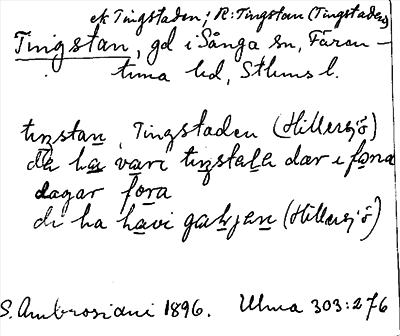 ek Tingstaden; R: Tingstan (Tingstaden)
Tingstan, gd i Sånga sn, Fären-
tuna hd, Sthlms l.
tıŋstan, Tingstaden (Hillersjö)
dä ha vari tıŋstalə dar i fona
dagar fora
di ha havi galjen (Hillersjö)
S. Ambrosiani 1896. Ulma 303:276